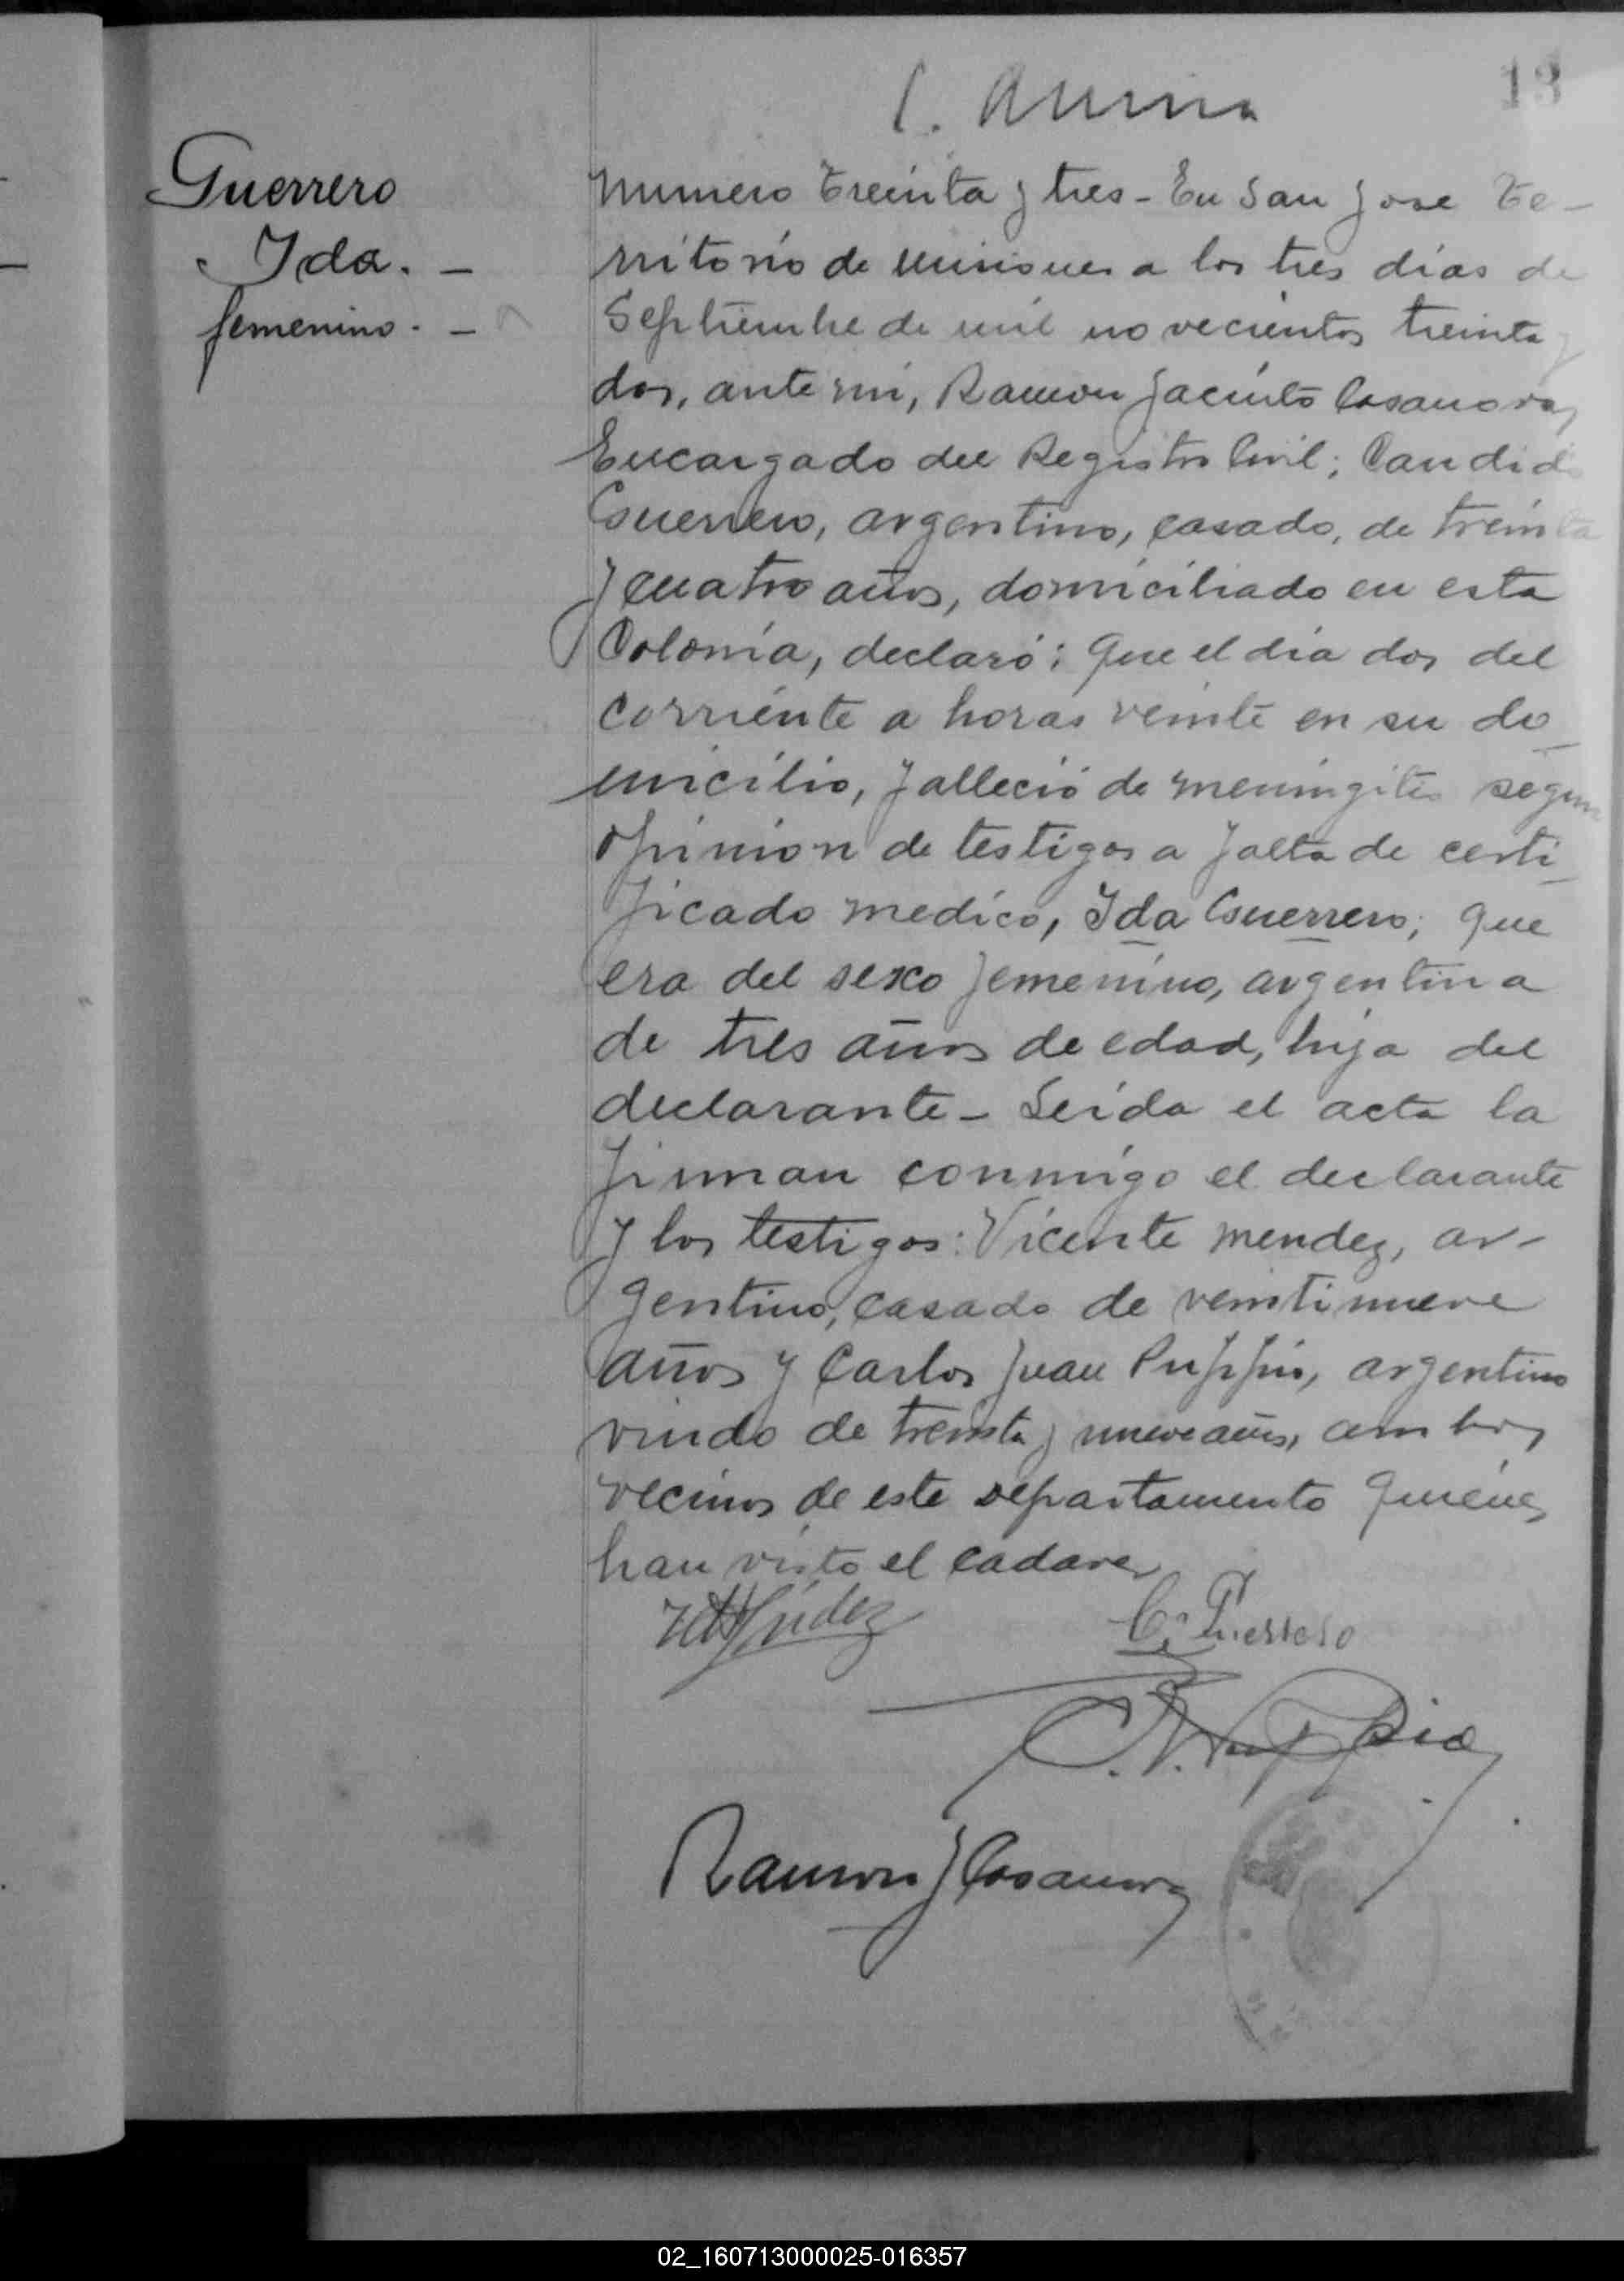 13
Guerrero
Ida. -
femenino. -
Numero treinta y tres - En San Jose Te-
rritorio de Misiones a los tres días de
Septiembre de mil novecientos treinta y
dos, ante mi, Ramon Jacinto Casanova,
Encargado del Registro Civil; Candido
Guerrero, argentino, casado, de treinta
y cuatro años, domiciliado en esta
Colonia, declaró: Que el día dos del
corriente a horas veinte en su do-
micilio, falleció de meningitis segun
opinion de testigos a falta de certi-
ficado medico, Ida Guerrero; que
era del sexo femenino, argentina
de tres años de edad, hija del
declarante - Leída el acta la
firman conmigo el declarante
y los testigos: Vicente Mendez, ar-
gentino, casado de veintinueve
años y Carlos Juan Puppio, argentino
viudo de treinta y nueve años, ambos
vecinos de este departamento quienes
han visto el cadaver
C. Guerrero
Ramon J Casanova
02_160713000025-016357